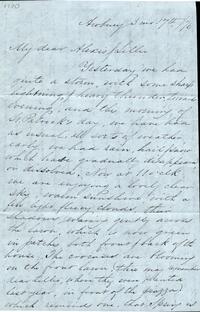 My dear
Yesterday we had
quite a storm, with some sharp
lightning & heavy thunder, in the
evening, and this morning of
St Patrick's day we have had
as usual all sorts of weather
early, we had rain, hail, snow
which have gradually disappeared
or dissolved. Now at 11 o'clk
we are enjoying a lovely clear
sky & warm sunshine, with a
few light fleecy clouds, their
shadows passing gently across
the lawn, which is now green
in patches, both front & back of the
house. The crocuses are blooming
on the front lawn, this may
last year, in front of the
which reminds one that Spring is